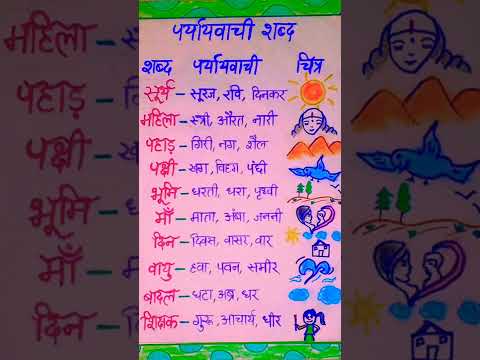 पर्यायवाची शब्द
शब्द पर्यायवाची चित्र
सूर्य – सूरज, रवि, दिनकर
महिला – स्त्री, औरत, नारी
पहाड़ – गिरी, नग, शैल
पक्षी – खग, विहग, पंछी
भूमि – धरती, धरा, पृथ्वी
माँ – माता, अंबा, जननी
दिन – दिवस, वासर, वार
वायु – हवा, पवन, समीर
बादल – घटा, अभ्र, धर
शिक्षक – गुरू, आचार्य, धीर
महिला
पहाड़
पक्षी
भूमि
माँ
दिन